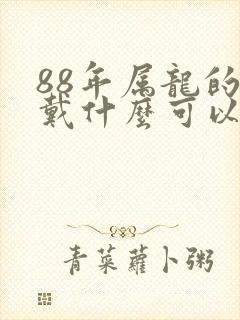 88年属龍的
戴什麼可以
青菜蘿卜粥